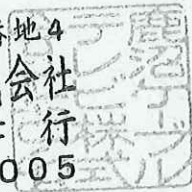 番地4
会社
行
005
鹿沼ケーブル
テレビ株式